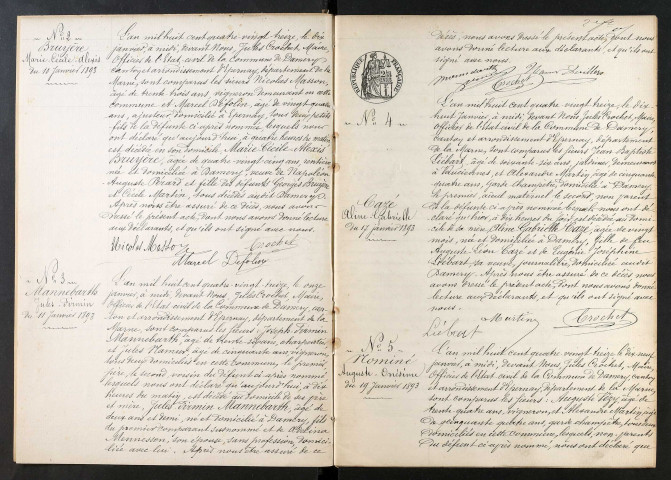 N° 2
Bruyère
Marie Cécile Alexis
du 10 Janvier 1893
L'an mil huit cent quatre vingt treize, le dix
janvier, à midi, devant Nous, Jules Crochet, Maire,
Officier de l'Etat civil de la Commune de Damery
canton et arrondissement d'Epernay, département de la
Marne, sont comparus les sieurs Nicolas Masson,
âgé de trente trois ans, vigneron demeurant en cette
commune et Marcel Defolin, âgé de vingt quatre
ans, ajusteur, domicilié à Epernay, tous deux petits
fils de la défunte ci après nommée, lesquels nous
ont déclaré qu'aujourd'hui, à quatre heures du matin
est décédée, en son domicile, Marie Cécile Alexis
Bruyère, âgée de quatre vingt cinq ans, rentière
née et domiciliée à Damery, veuve de Napoléon
Auguste Picard et fille des défunts Georges Bruyère
et Cécile Martin,
Après nous être assuré de ce décès, nous avons
dressé le présent acte, dont nous avons donné lecture
aux déclarants, et qu'ils ont signé avec nous.
Nicolas Masson
Crochet
Marcel Defolin
N° 3
Mannebarth
Jules Firmin
du 11 Janvier 1893
L'an mil huit cent quatre vingt treize, le onze
janvier, à midi, devant Nous, Jules Crochet, Maire,
Officier de l'Etat civil de la Commune de Damery, can-
ton et arrondissement d'Epernay, département de la
Marne, sont comparus les sieurs : Joseph Firmin
Mannebarth, âgé de trente ans, charpentier,
et Jules Hanost, âgé de cinquante ans, vigneron,
tous deux domiciliés en cette commune, le premier
père, le second voisin du défunt ci après nommé
lesquels nous ont déclaré qu'aujourd'hui, à dix
heures du matin, est décédé au domicile de ses père
et mère, Jules Firmin Mannebarth, âgé de
deux ans et demi, né et domicilié à Damery, fils
du premier comparant susnommé et de
Mennesson, son épouse, sans profession, domici-
liée avec lui. Après nous être assuré de ce
décès, nous avons dressé le présent acte, dont nous
avons donné lecture aux déclarants, et qu'ils ont
signé avec nous.
Crochet
RÉPUBLIQUE FRANÇAISE
N° 4
Caze
Aline Gabrielle
du 17 Janvier 1893
L'an mil huit cent quatre vingt treize, le dix
huit janvier, à midi, devant Nous Jules Crochet, Maire,
Officier de l'Etat civil de la Commune de Damery,
canton et arrondissement d'Epernay, département
de la Marne, sont comparus les sieurs Jean Baptiste
Liébart, âgé de soixante six ans, demeurant
à Vauciennes, et Alexandre Martin, âgé de cinquante
quatre ans, garde champêtre, domicilié à Damery,
le premier, aïeul maternel, le second, non parent
de la défunte ci après nommée, lesquels nous ont dé-
claré qu'hier, à dix heures du soir, est décédée au domi-
cile de sa mère, Aline Gabrielle Caze, âgée de vingt
mois, née et domiciliée à Damery, fille de feu
Auguste Léon Caze et de Eugénie Joséphine
Liébart, sa veuve, journalière, domiciliée audit
Damery. Après nous être assuré de ce décès nous
avons dressé le présent acte, dont nous avons donné
lecture aux déclarants, et qu'ils ont signé avec
nous.
Martin
Crochet
Liébart
N° 5
Nominé
Auguste Onésime
du 19 Janvier 1893
L'an mil huit cent quatre vingt treize, le dix neuf
janvier, à midi, devant Nous, Jules Crochet, Maire,
Officier de l'Etat civil de la Commune de Damery, canton
et arrondissement d'Epernay, département de la Marne
sont comparus les sieurs : Auguste Tézy, âgé de
trente quatre ans, vigneron, et Alexandre Martin, âgé
de cinquante quatre ans, garde champêtre, tous deux
domiciliés en cette commune, lesquels, non parents
du défunt ci après nommé, nous ont déclaré que